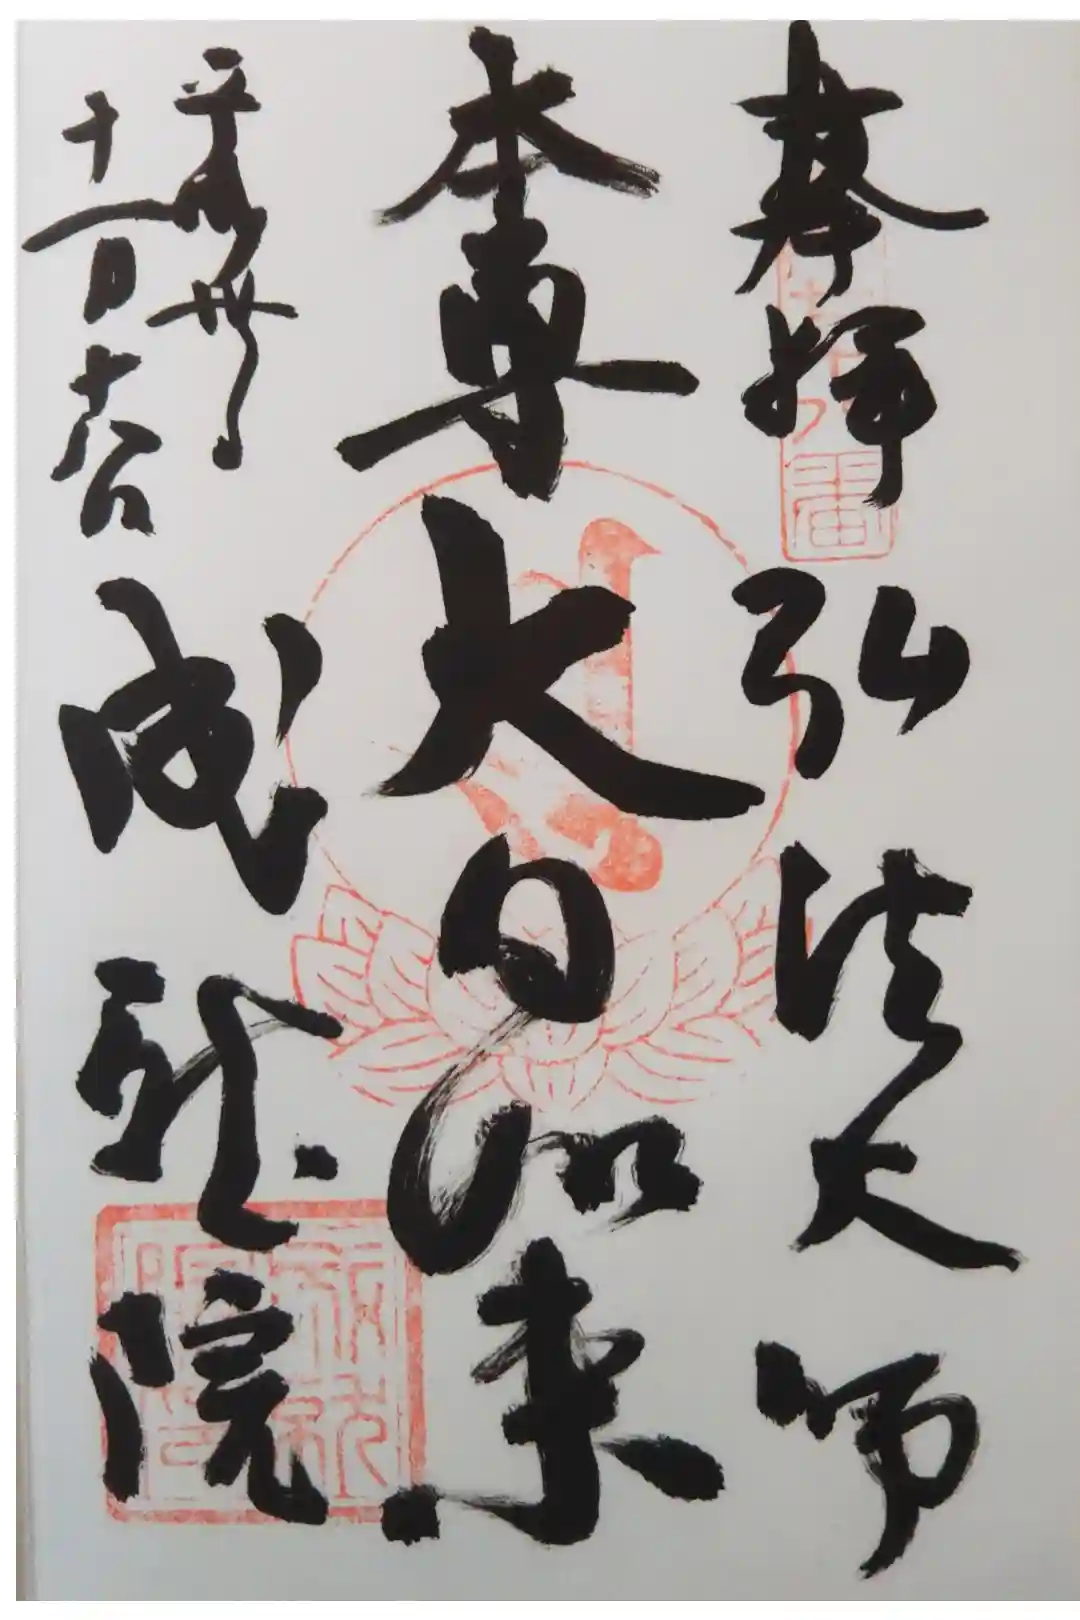 奉拝 弘法大師
本尊大日如来
平成卅年
十一月十六日
成就院